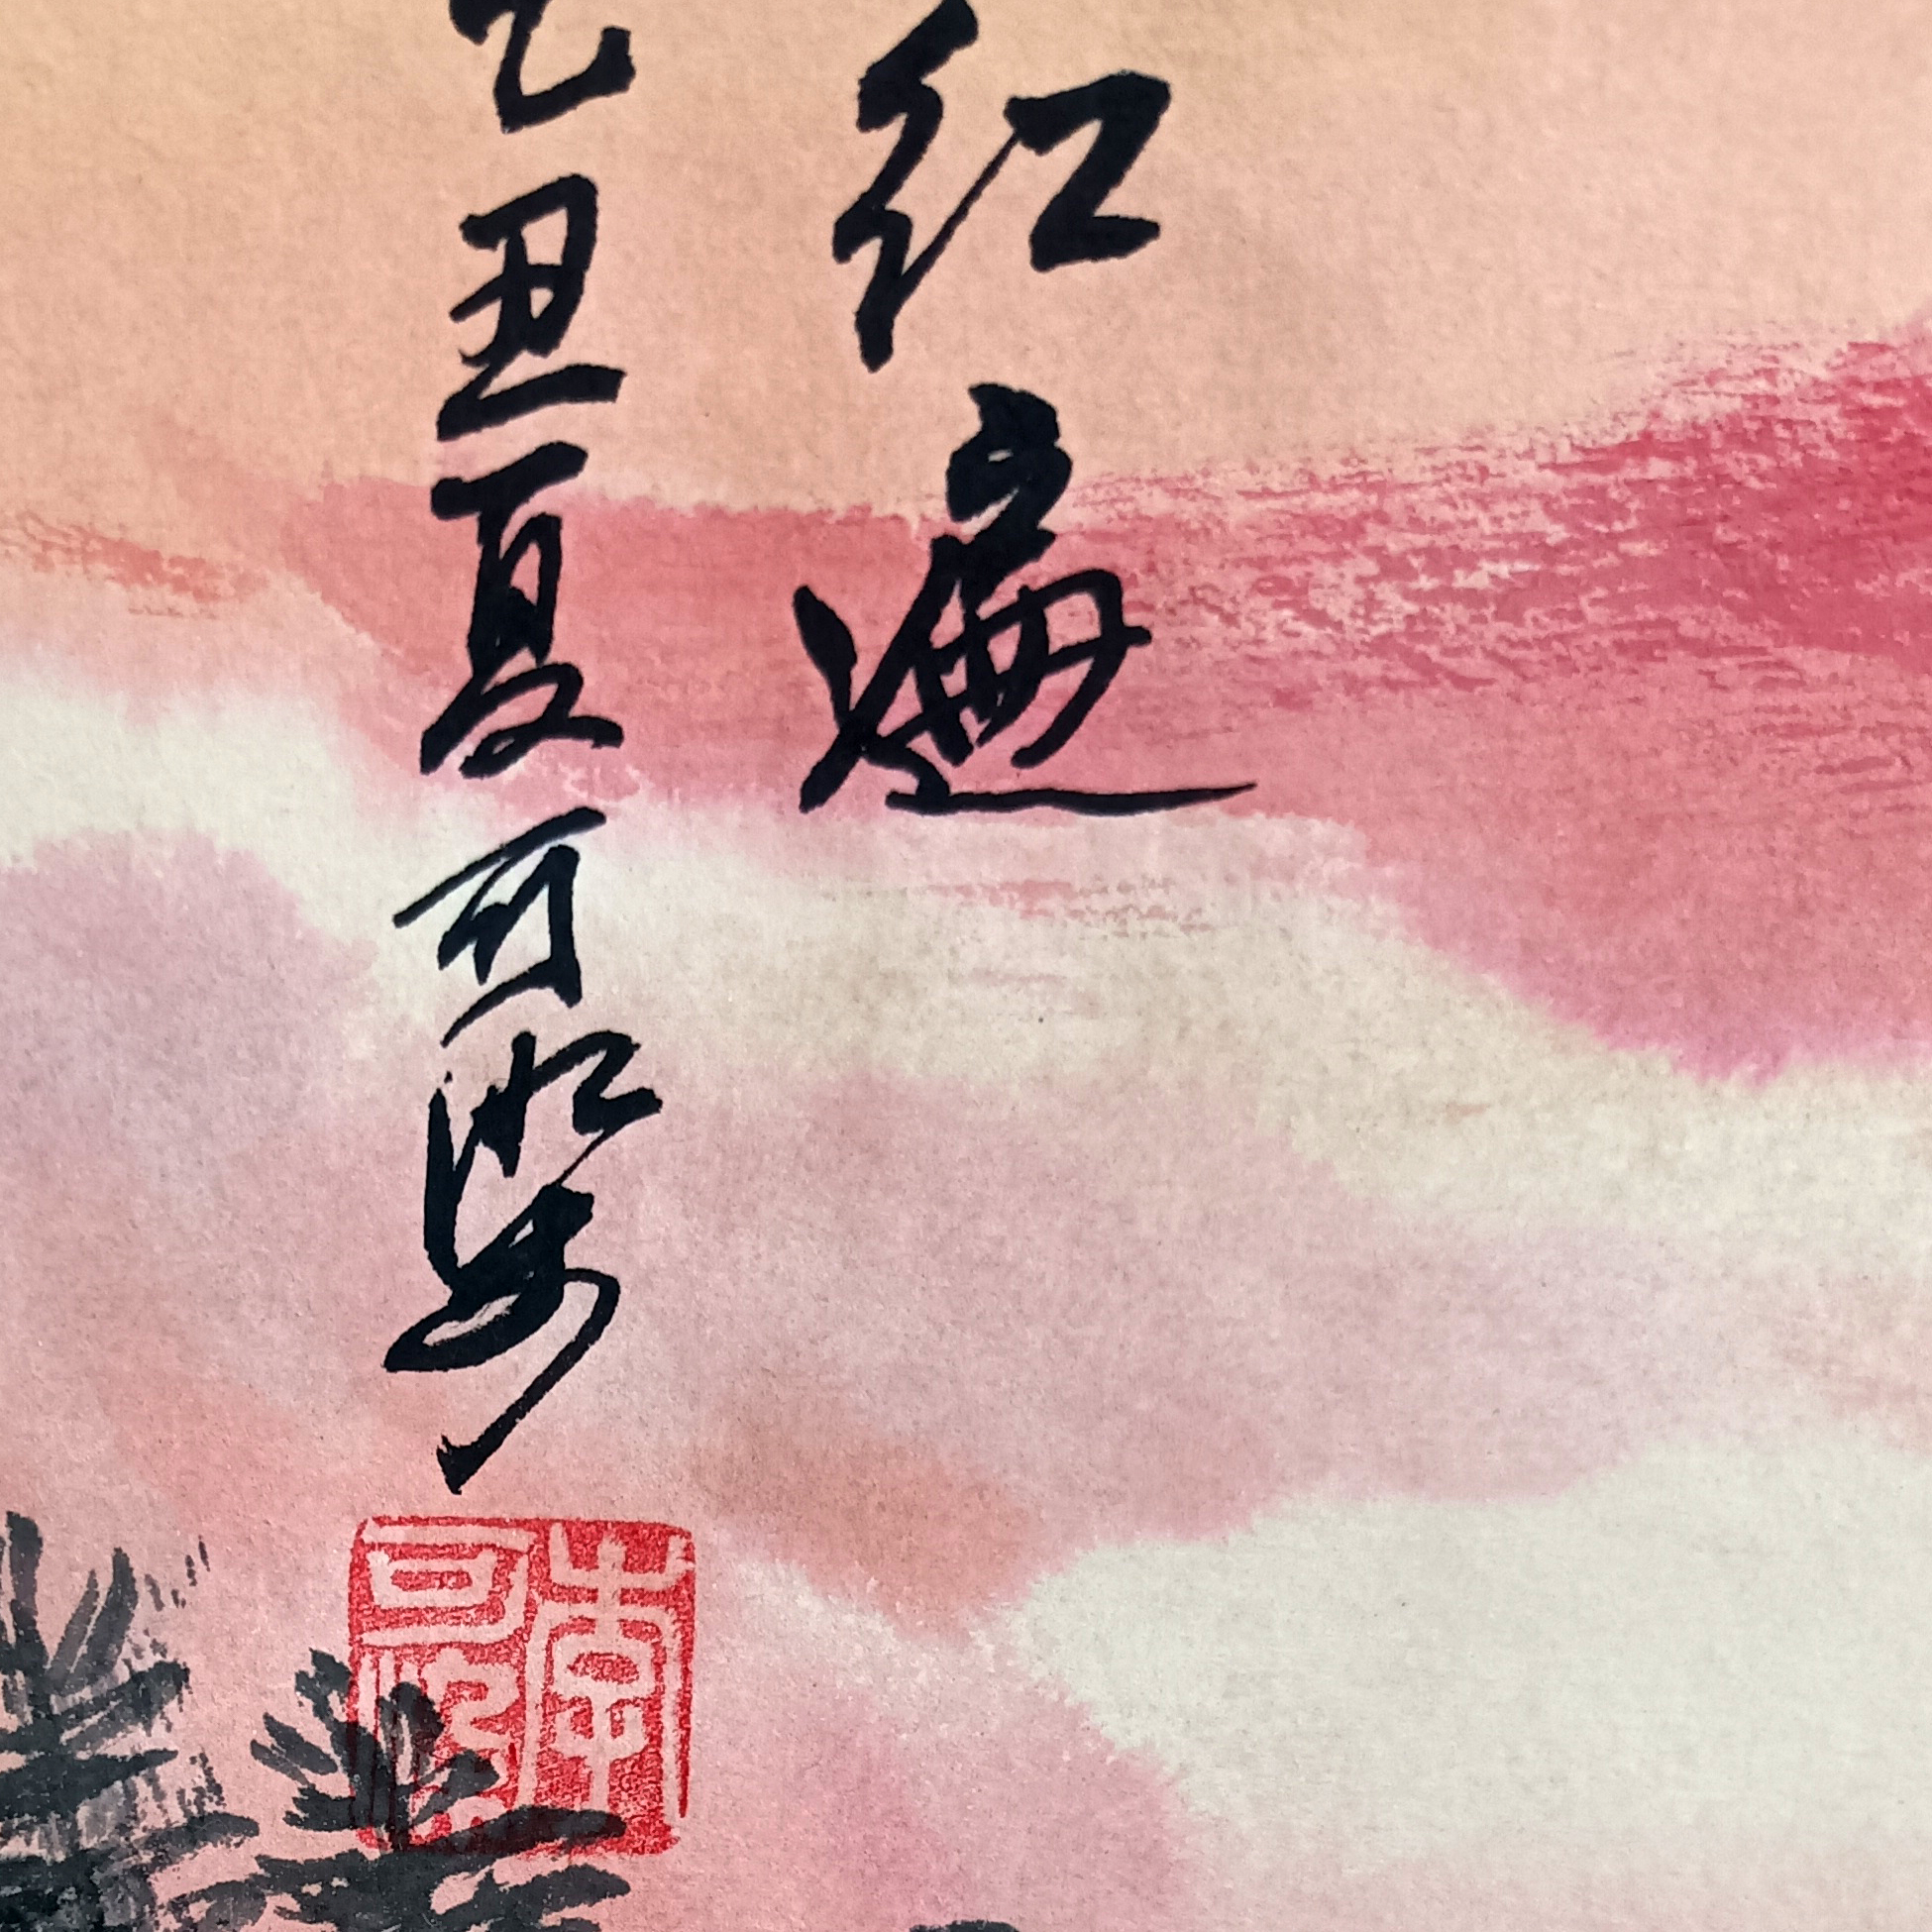 红遍
乙丑夏可染